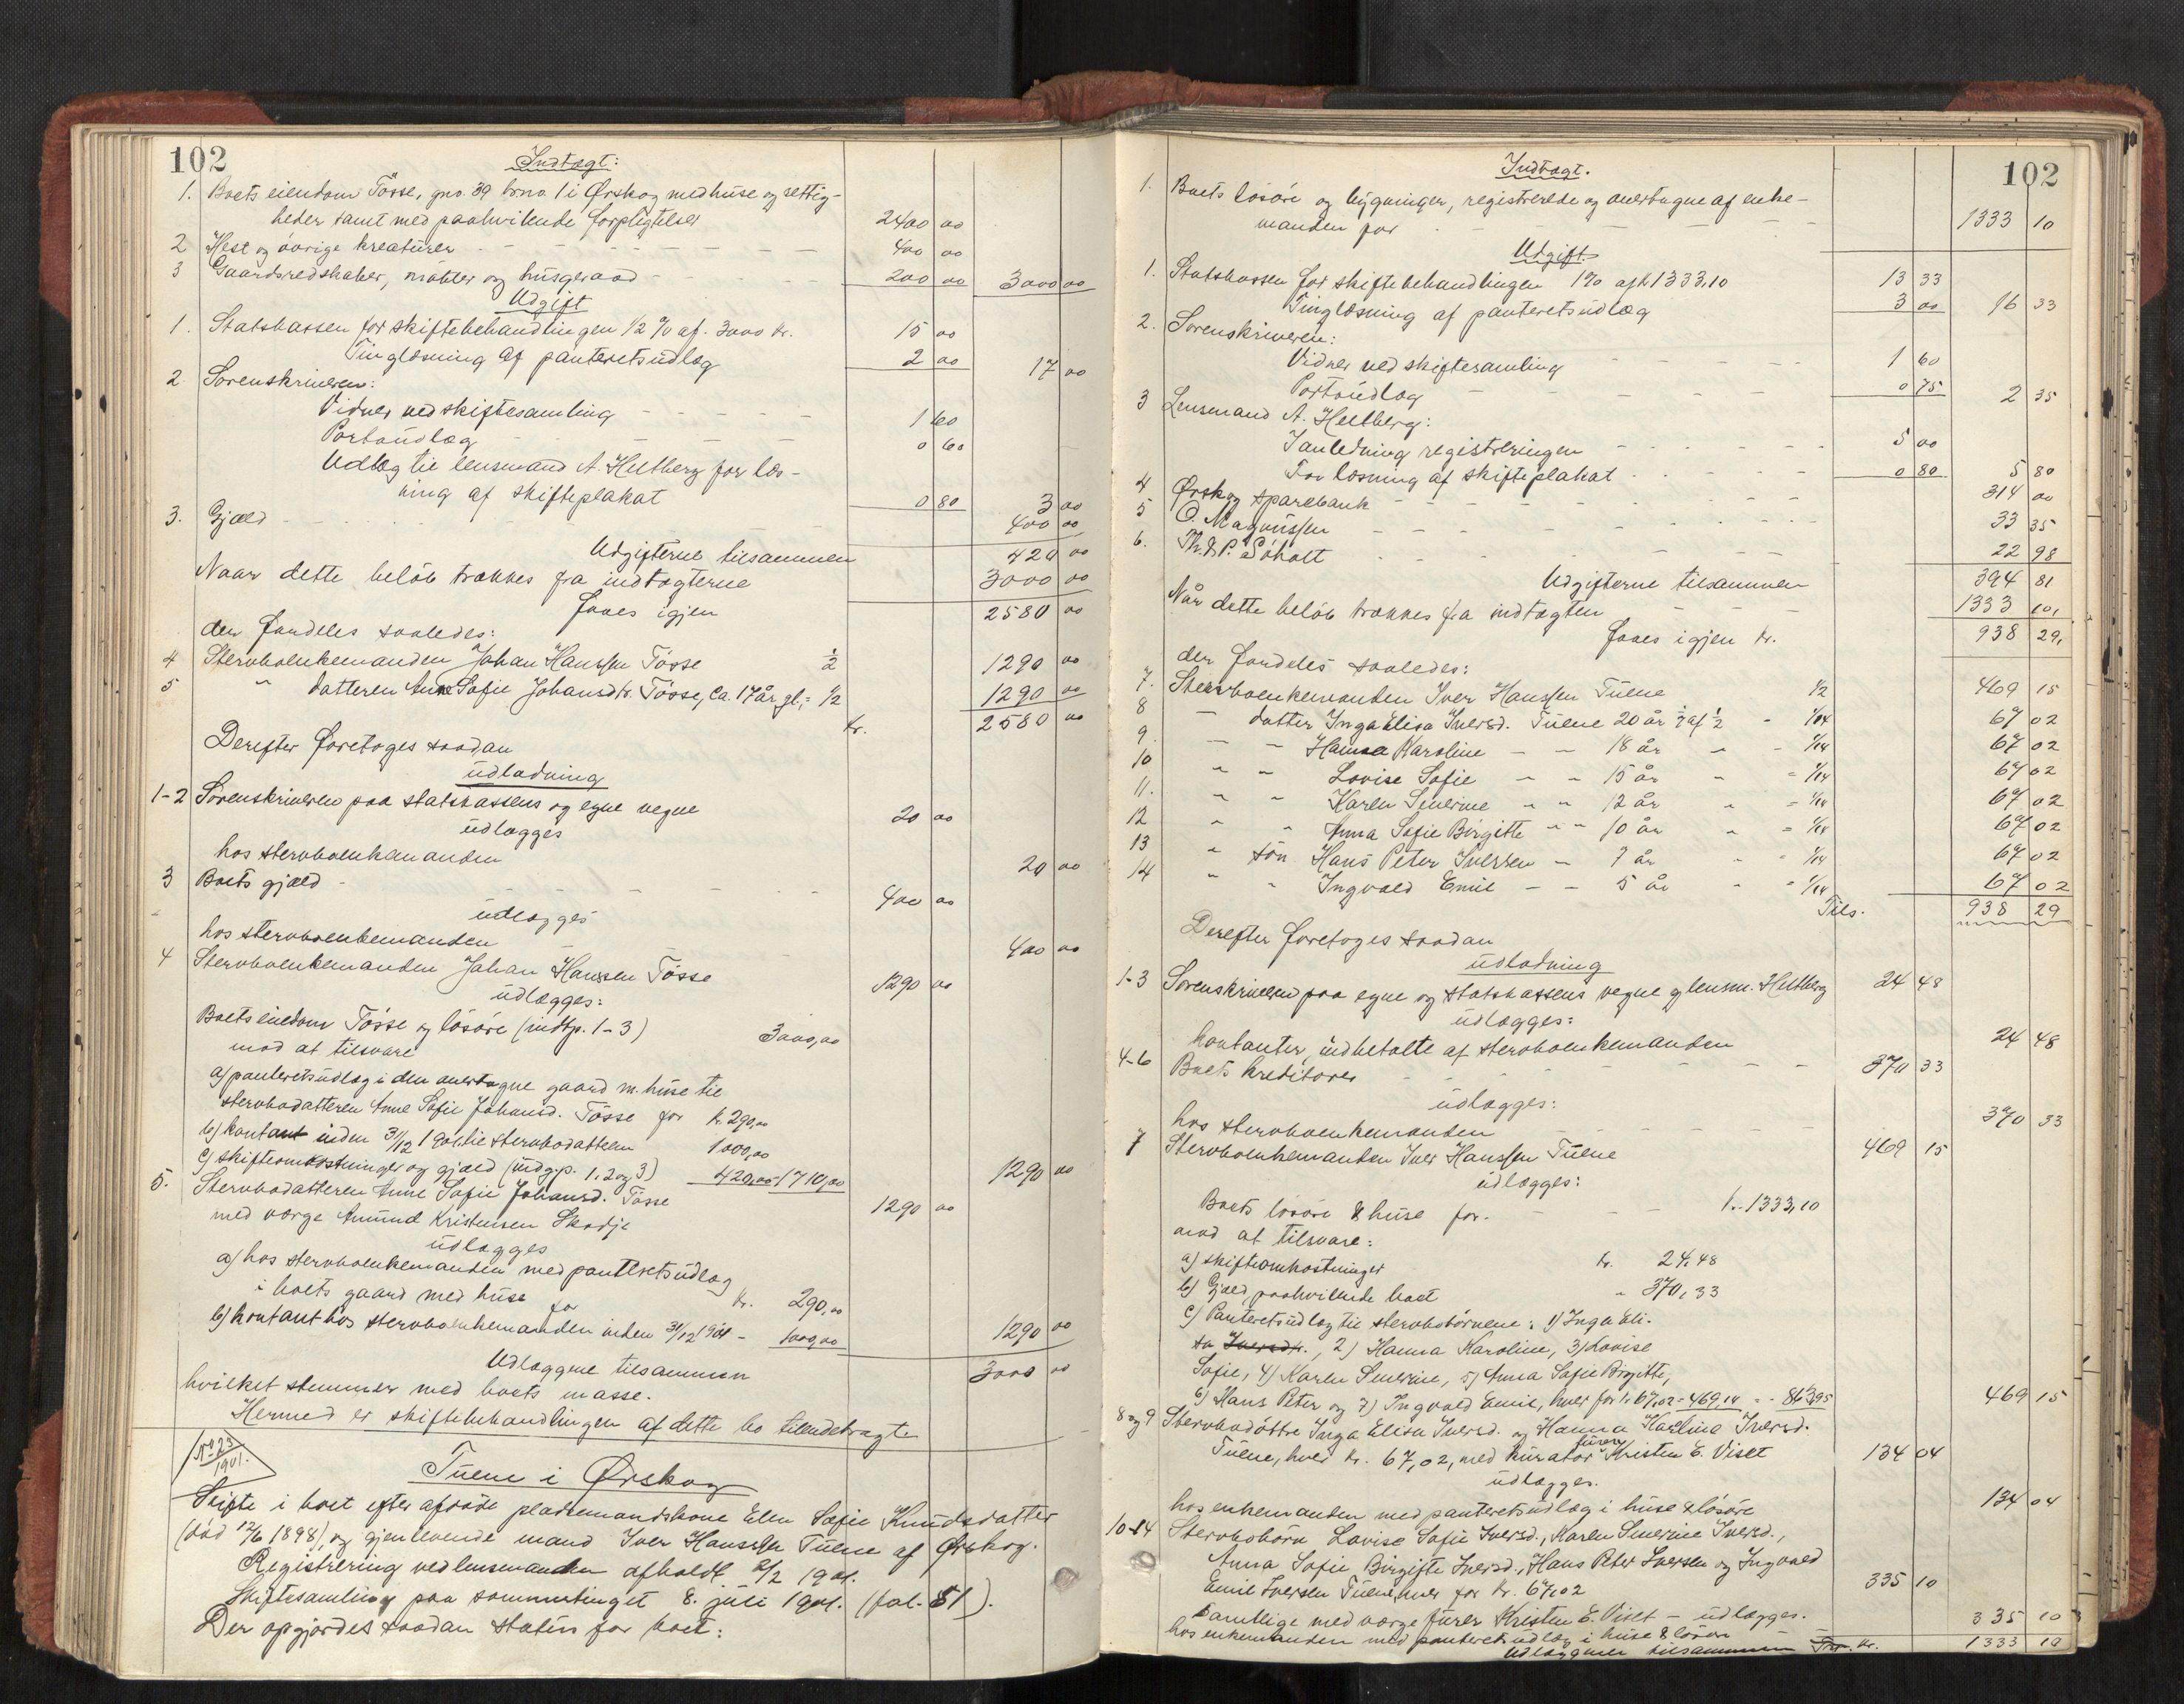 102
Indtægt:
1. Boets eiendom Tösse, gno. 39 brno. 1 i Ørskog med huse og rettig-
heder samt med paahvilende forpligtelser 2400 00
2 Hest og övrige kreaturer 400 00
3 Gaardsredskaber, möbler og husgeraad 200 00 3000 00
Udgift
1. Statskassen for skiftebehandlingen 1/2 % af. 3000 kr. 15 00
Tinglæsning af panteretsudlæg 2 00 17 00
2. Sorenskriveren:
Vidner ved skiftesamling 1 60
Portoudlæg 0 60
Udlæg til lensmand A. Heltberg for læs-
ning af skifteplakat 0 80 3 00
3. Gjæld 400 00
Udgifterne tilsammen 420 00
Naar dette belöb trækkes fra indtægterne 3000 00
faaes igjen 2580 00
der fordeles saaledes:
4 Stervboenkemanden Johan Hanssen Tösse 1/2 1290 00
5 " datteren Anne Sofie Johansdtr. Tösse, ca. 17 år gl, = 1/2 1290 00
kr. 2580 00
Derefter foretoges saadan
udlodning
1-2 Sorenskriveren paa statskassens og egne vegne 20 00
udlægges
hos stervboenkemanden 20 00
3 Boets gjæld 400 00
udlægges
hos stervboenkemanden 400 00
4 Stervboenkemanden Johan Hanssen Tösse 1290 00
udlægges:
Boets eiendom Tösse og lösöre (indtp. 1-3) 3000,00
mod at tilsvare
a) panteretsudlæg i den overtagne gaard m. huse til
stervbodatteren Anne Sofie Johansd. Tösse for kr. 290,00
b) kontant inden 31/12 1901 til stervbodatteren 1000,00
c) skifteomkostninger og gjæld (udg.p. 1, 2 og 3) 420,00 1710,00 1290 00
5. Stervbodatteren Anne Sofie Johansd. Tösse 1290 00
med værge Amund Kristensen Skodje
udlægges
a) hos stervboenkemanden med panteretsudlæg
i boets gaard med huse for kr. 290,00
b) kontant hos stervboenkemanden inden 31/12 1901 - 1000,00 1290 00
Udlæggene tilsammen 3000 00
hvilket stemmer med boets masse.
Hermed er skiftebehandlingen af dette bo tilendebragt.
No 23
1901.
Tuene i Ørskog
Skifte i boet efter afdöde pladsemandskone Elen Sofie Knudsdatter
(död 12/6 1898), og gjenlevende mand Iver Hanssen Tuene af Ørskog.
Registrering ved lensmanden afholdt 2/2 1901.
Skiftesamling paa sommertinget 8. juli 1901. (fol. 51).
Der opgjordes saadan status for boet:
102
Indtægt.
1. Boets lösöre og bygninger, registrerede og overtagne af enke-
manden for 1333 10
Udgift
1. Statskassen for skiftebehandlingen 1% af k 1333,10 13 33
Tinglæsning af panteretsudlæg 3 00 16 33
2. Sorenskriveren:
Vidner ved skiftesamling 1 60
Portoudlæg 0 75 2 35
3 Lensmand A. Heltberg:
I anledning registreringen 5 00
For læsning af skifteplakat 0 80 5 80
4 Ørskog sparebank 314 00
5 O. Magnussen 33 35
6. Th. & P. Söholt 22 98
Udgifterne tilsammen 394 81
Når dette belöb trækkes fra indtægten 1333 10,
faaes igjen kr. 938 29,
der fordeles saaledes:
7. Stervboenkemanden Iver Hanssen Tuene 1/2 469 15
8 " datter Inga Elisa Iversd. Tuene 20 år 1/7 af 1/2 = 1/14 67 02
9. " " Hanna Karoline " " 18 år " = 1/14 67 02
10 " " Lovise Sofie " " 15 år " = 1/14 67 02
11. " " Karen Severine " " 12 år " = 1/14 67 02
12 " " Anna Sofie Birgitte " " 10 år " = 1/14 67 02
13 " sön Hans Peter Iversen " 7 år " = 1/14 67 02
14 " " Ingvald Emil " " 5 år " = 1/14 67 02
Tils. 938 29
Derefter foretoges saadan
udlodning
1-3 Sorenskriveren paa egne og statskassens vegne og lensm. Heltberg 24 48
udlægges:
kontanter, indbetalte af stervboenkemanden 24 48
4-6 Boets kreditorer 370 33
udlægges:
hos stervboenkemanden 370 33
7 Stervboenkemanden Iver Hanssen Tuene 469 15
udlægges:
Boets lösöre & huse for. kr. 1333,10
mod at tilsvare:
a) skifteomkostninger kr. 24,48
b) Gjæld, paahvilende boet " 370,33
c) Panteretsudlæg til stervbobörnene: 1) Inga Eli-
sa Iversdtr., 2) Hanna Karoline, 3) Lovise
Sofie, 4) Karen Severine, 5) Anna Sofie Birgitte,
6) Hans Peter og 7) Ingvald Emil, hver for kr. 67,02 = 469,14 = - 863,95 469 15
8 og 9 Stervbodöttre Inga Elisa Iversd. og Hanna Karoline Iversd.
Tuene, hver kr. 67,02, med kurator furer Kristen E. Viset 134 04
udlægges.
hos enkemanden med panteretsudlæg i huse & lösöre 134 04
10-14 Stervbobörn Lovise Sofie Iversd., Karen Severine Iversd.,
Anna Sofie Birgitte Iversd., Hans Peter Iversen og Ingvald
Emil Iversen Tuene, hver for kr. 67,02 335 10
samtlige med værge furer Kristen E. Viset - udlægges.
hos enkemanden med panteretsudlæg i huse & lösöre 335 10
Udlæggene tilsammen kr. 1333 10